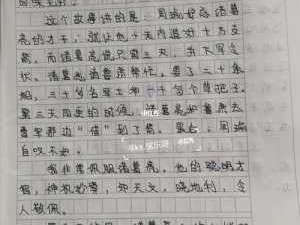 这个故事讲的是:周瑜妒忌诸葛
亮的才干,就让他十天内造好十万支
箭,而诸葛亮说只需三天,并下军令
状。诸葛亮请鲁肃帮忙,要了三十条
船,三十名军士和
第三天四更的时候,诸葛亮和鲁肃去
曹军那边“借”到了箭。果后,周瑜
自叹不如。
我非常佩服诸葛亮,他的聪明才
智,神机妙算,知天文,晓地利,令
人敬佩。